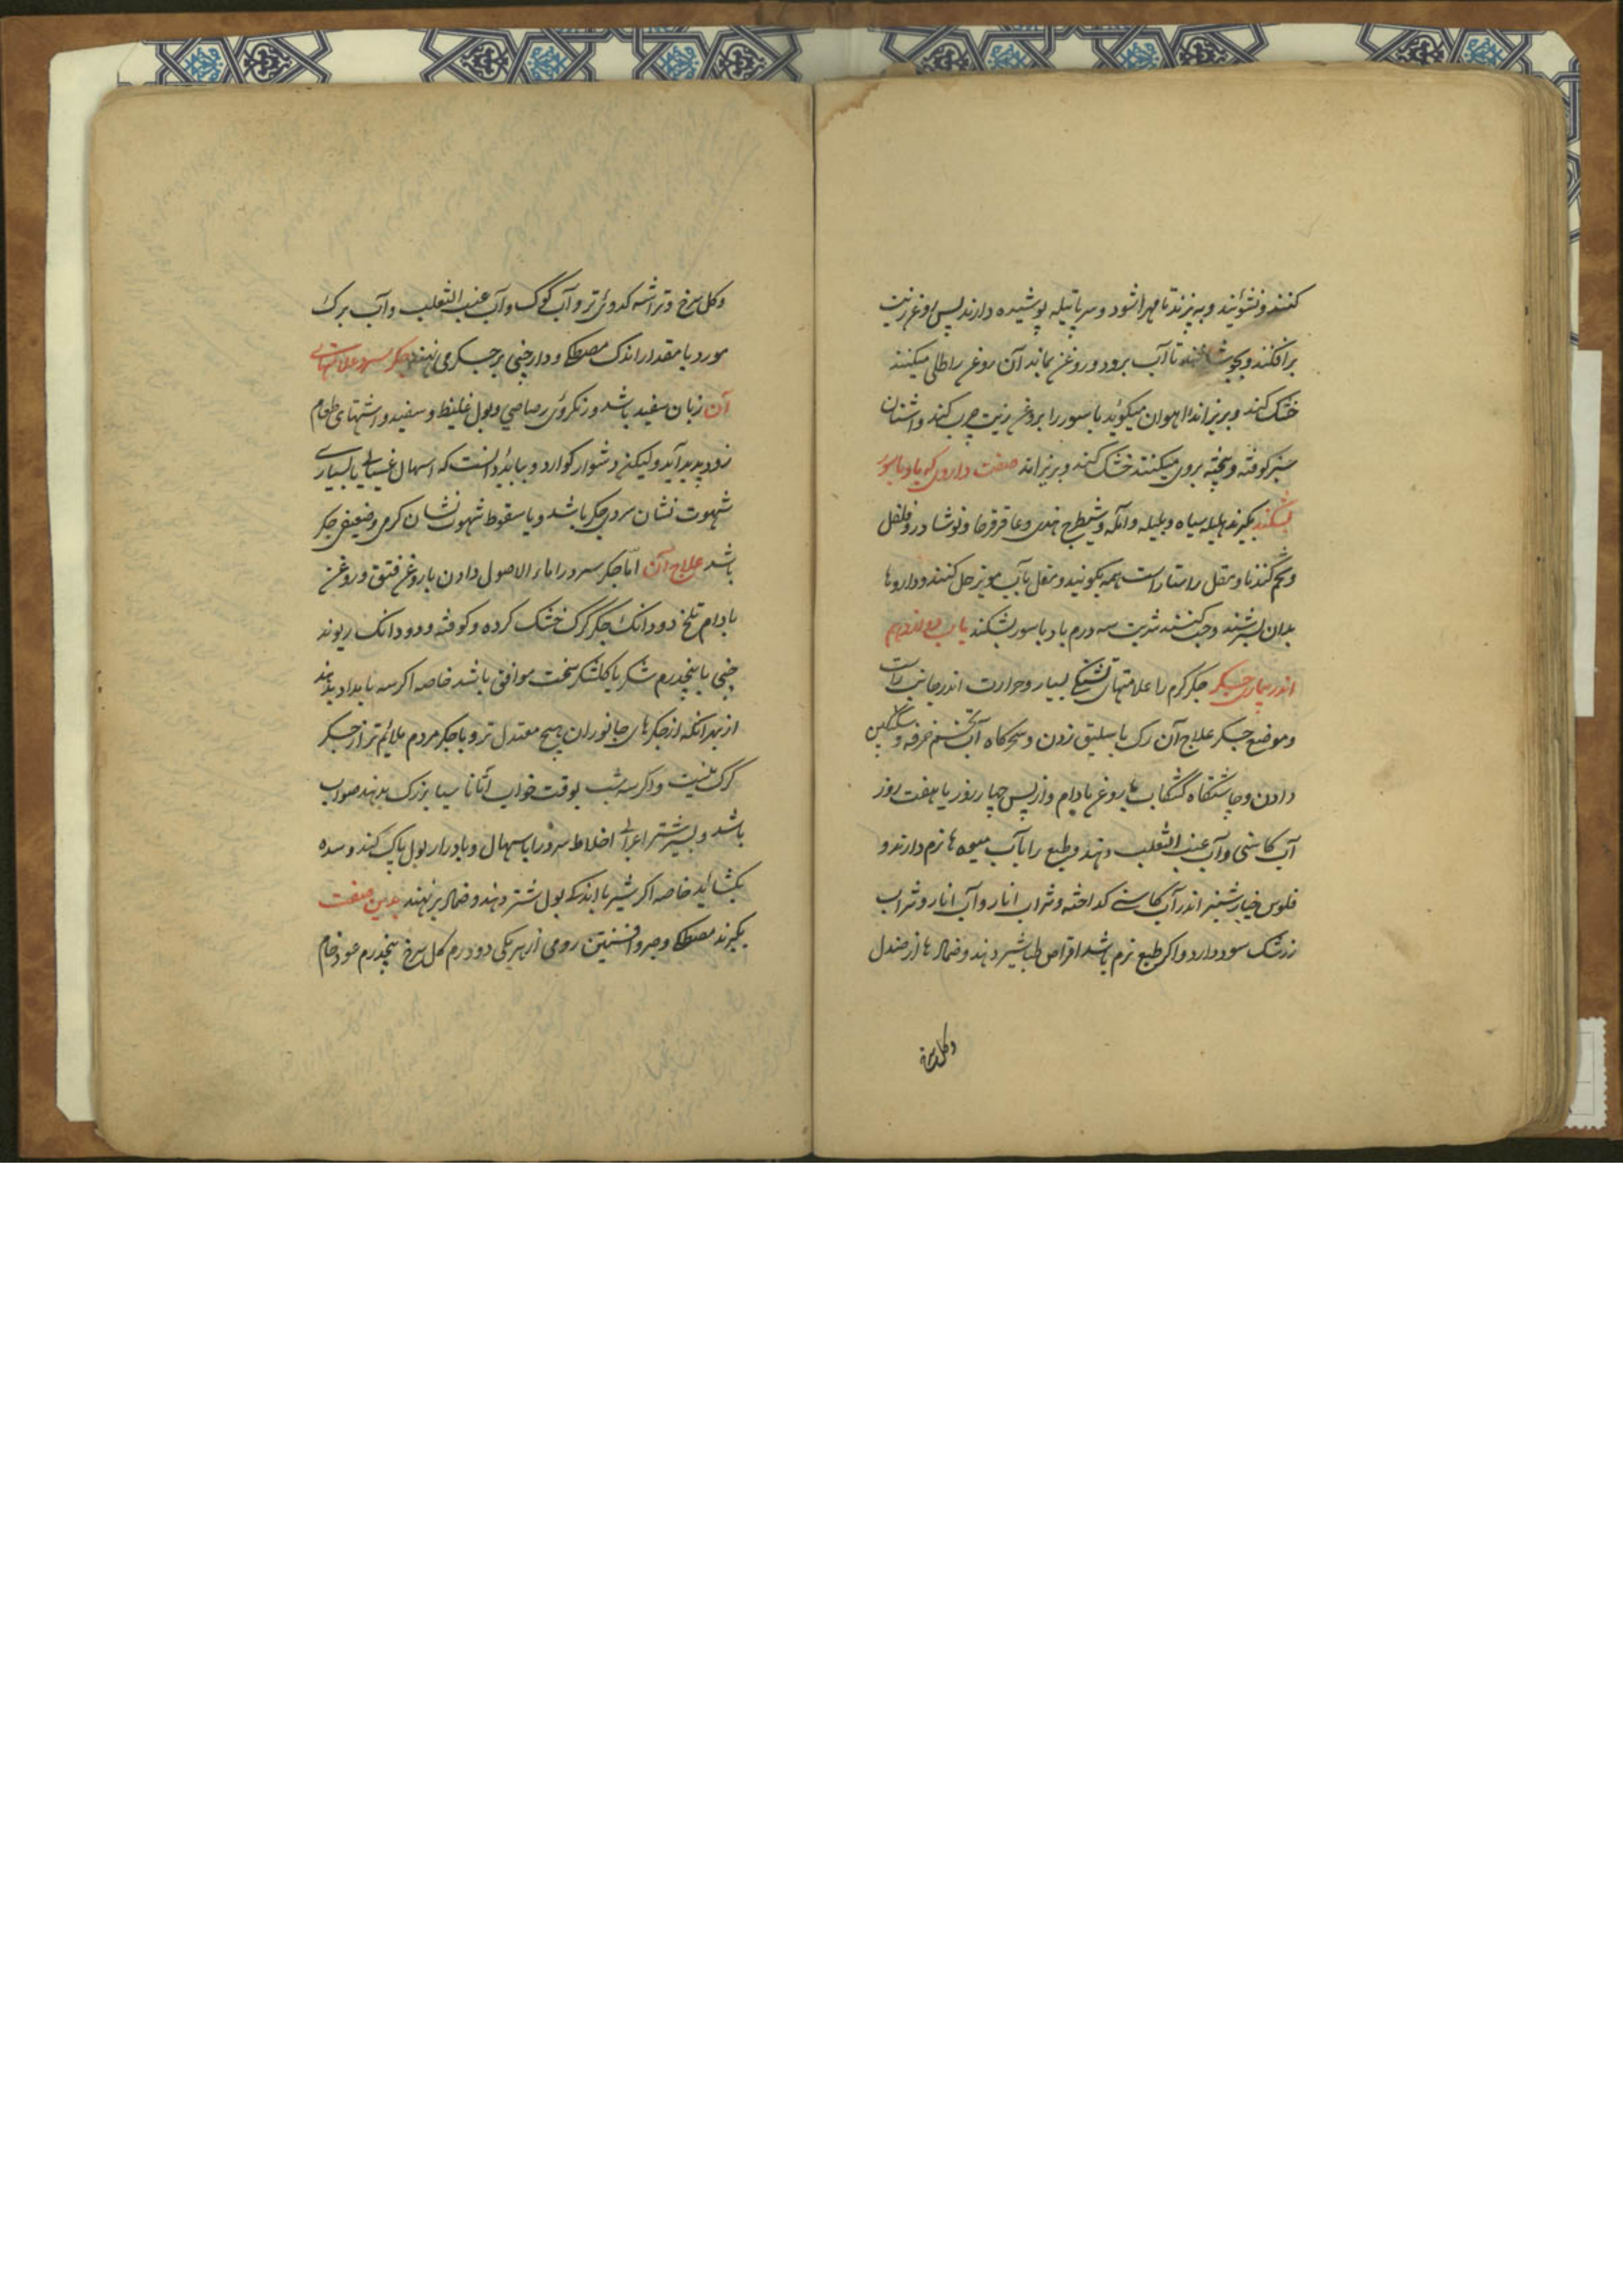 کنند و نشویند و بپزند تا مهرا شود و سر پاتیله پوشیده دارند پس روغن زیت
برافکنند و تا آب برود و روغن بماند آن روغن را طلی میکنند
خشک کند و بریزاند اهوان میکوید باسور را بروغن زیت چرب کند و اشنان
سبز کوفته و پخته بروی میکنند خشک کند و بریزاند صفت داروی که باد باسور
بشکند بکیرند هلیله سیاه و بلیله و آمله و شیطرج هندی و عاقرقرحا و نوشادر و فلفل
و تخم کندنا و مقل راستا راست همه بکوبند و مقل بآب مویز حل کنند و داروها
بدان بسرشند و حب کنند شربت سه درم باد باسور بشکند باب
اندر بیماری جکر جکر کرم را علامتهای تشنکی بسیار و حرارت اندر جانب راست
و موضع جکر علاج آن رک باسلیق زدن و سحرکاه آب تخم خرفه و سکنکبین
دادن و چاشتکاه کشکاب با روغن بادام و از پس چهار روز یا هفت روز
آب کاسنی و آب عنب الثعلب دهند و طبع را بآب میوه ها نرم دارند و
فلوس خیارشنبر اندر آب کاسنی کداخته و شراب انار و آب انار و شراب
زرشک سود دارد و اکر طبع نرم باشد اقراص طباشیر دهند و ضمادها از صندل
وکل سرخ
وکل سرخ و تراشه کدوی تر و آب کوک و آب عنب الثعلب و آب برک
مورد با مقدار اندک مصطکی و دارچینی بر جکر می نهند جکر سرد علامتهای
آن زبان سفید باشد و رنک روی رصاصی و بول غلیظ و سفید و اشتهای طعام
زود پدید آید ولیکن دشوار کوارد و بباید دانست که اسهال غسالی با بسیاری
شهوت نشان سردی جکر باشد و با سقوط شهوت نشان کرمی و ضعیفی جکر
باشد علاج آن اما جکر سرد را ماء الاصول دادن با روغن فستق و روغن
بادام تلخ دو دانک جکر کرک خشک کرده و کوفته و دو دانک ریوند
چینی با پنجدرم شکر یا کلشکر سخت موافق باشد خاصه اکر سه بامداد بدهند
از بهر آنکه از جکرهای جانوران هیچ معتدل تر و با جکر مردم ملایم تر از جکر
کرک نیست و اکر سه شب بوقت خواب اثاناسیا بزرک بدهند صواب
باشد و شیر شتر اعرابی اخلاط سرد را باسهال و بادرار بول پاک کند و سده
بکشاید خاصه اکر شیر با اندک بول شتر دهند و ضماد بر نهند بدین صفت
بکیرند مصطکی و صبر و افسنتین رومی از هر یکی دو درم کل سرخ پنجدرم عود خام